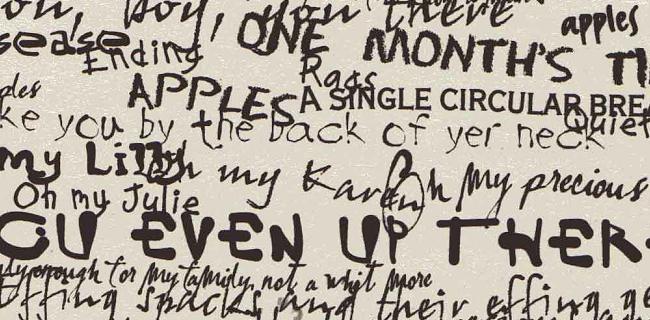 on, boy, you there
sease Ending ONE MONTH'S apples
Rags
APPLES A SINGLE CIRCULAR BRE
ke you by the back of yer neck Quiet
my Lilly Oh my Karen Oh My precious
Oh my Julie
OU EVEN UP THER
enough for my family, not a whit more
effing spacks, and their effing